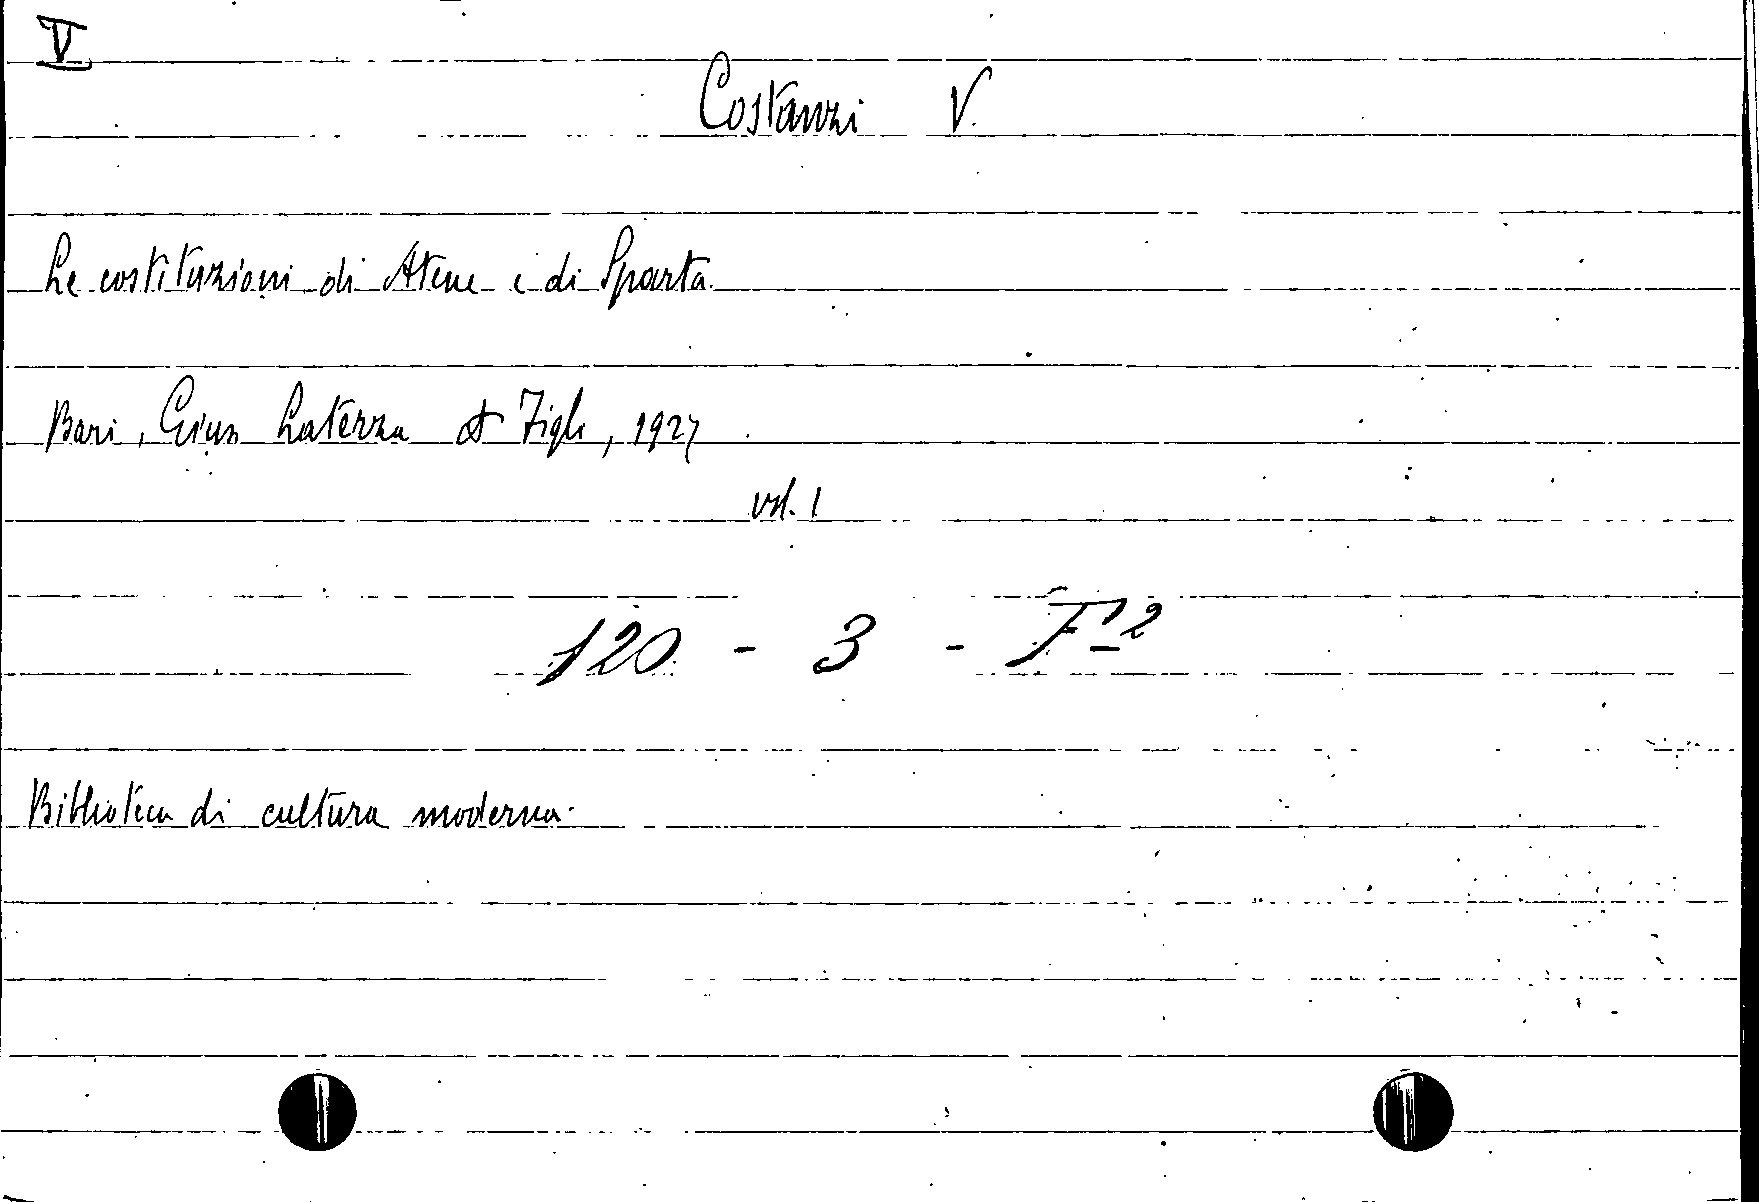 V
Costanzi V.
Le costituzioni di Atene e di Sparta.
Bari, Gius Laterza & Figli, 1927
vol. 1
120 - 3 - F-2
Biblioteca di cultura moderna.